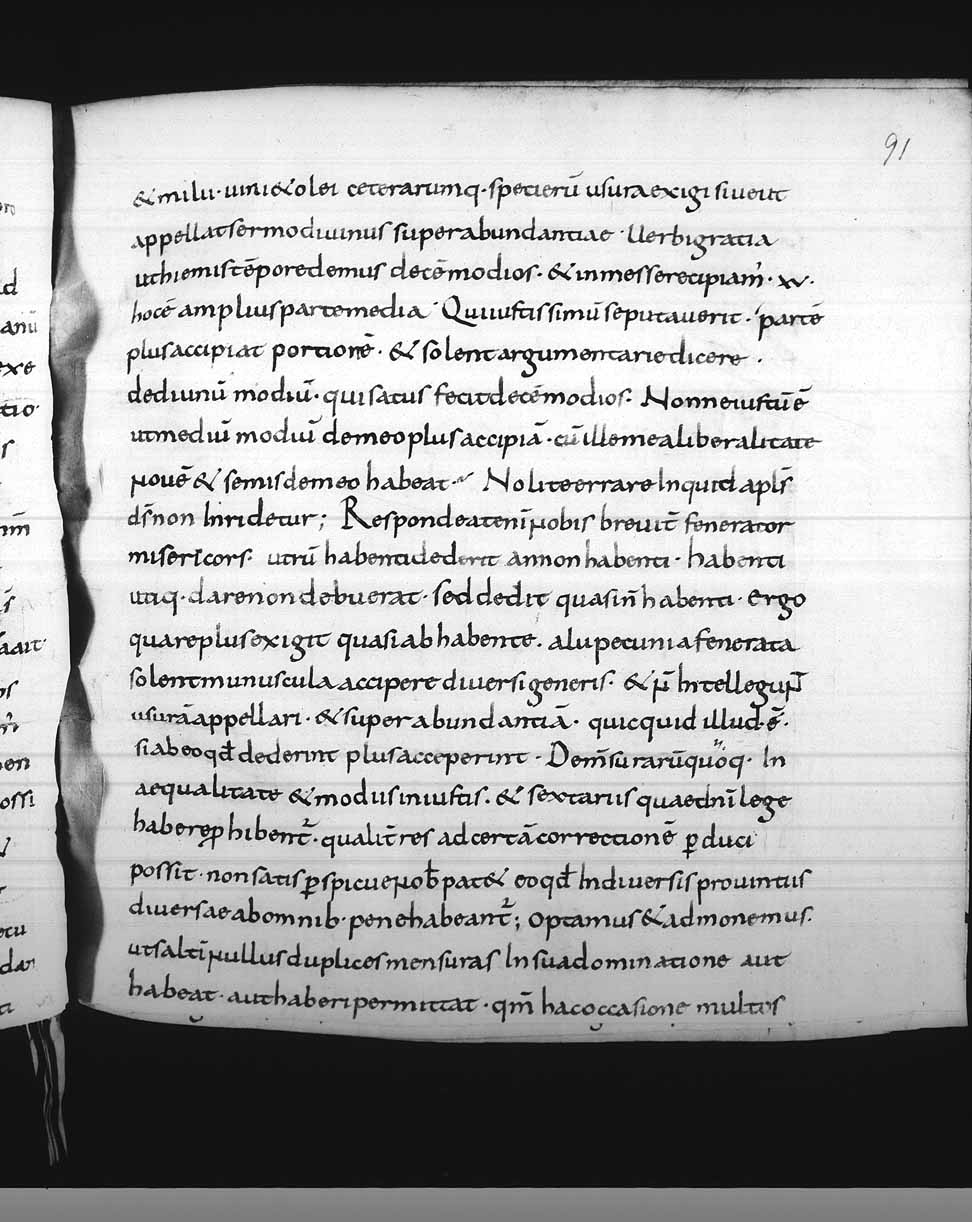 91
& milii · uini & olei ceterarumq · specierū usura exigi siue ut
appellat sermo diuinus superabundantiae · Uerbi gratia
ut hiemis tēpore demus decē modios · & in messe recipiam̄ · xv ·
hoc ē amplius parte media Qui iustissimū se putauerit · partē
plus accipiat portionē · & solent argumentarie dicere ·
dedi unū modiū · qui satus fecit decē modios · Nonne iustū ē
ut mediū modiū de meo plus accipiā · cū ille mea liberalitate
nouē & semis de meo habeat · Nolite errare Inquid apl̄s
d̄s non Inridetur ; Respondeat enī nobis breuit̄ fenerator
misericors · utrū habenti dederit an non habenti · habenti
utiq · dare non debuerat · sed dedit quasi n̄ habenti · ergo
quare plus exigit quasi ab habente · alii pecunia fenerata
solent munuscula accipere diuersi generis · & n̄ Intellegun̄
usurā appellari · & superabundantiā · quicquid illud ē ·
si ab eo qđ dederint plus acceperint · Dem̄surarū quoq · In
aequalitate & modiis iniustis · & sextariis quae dn̄i lege
habere ꝓhibent̄ · qualit̄ res ad certā correctionē ꝑduci
possit · non satis ꝑspicue nob̄ pat& eo qđ In diuersis prouintiis
diuersae ab omnib · pene habeant̄ ; optamus & admonemus ·
ut saltī nullus duplices mensuras In sua dominatione aut
habeat · aut haberi permittat · qm̄ hac occasione multos